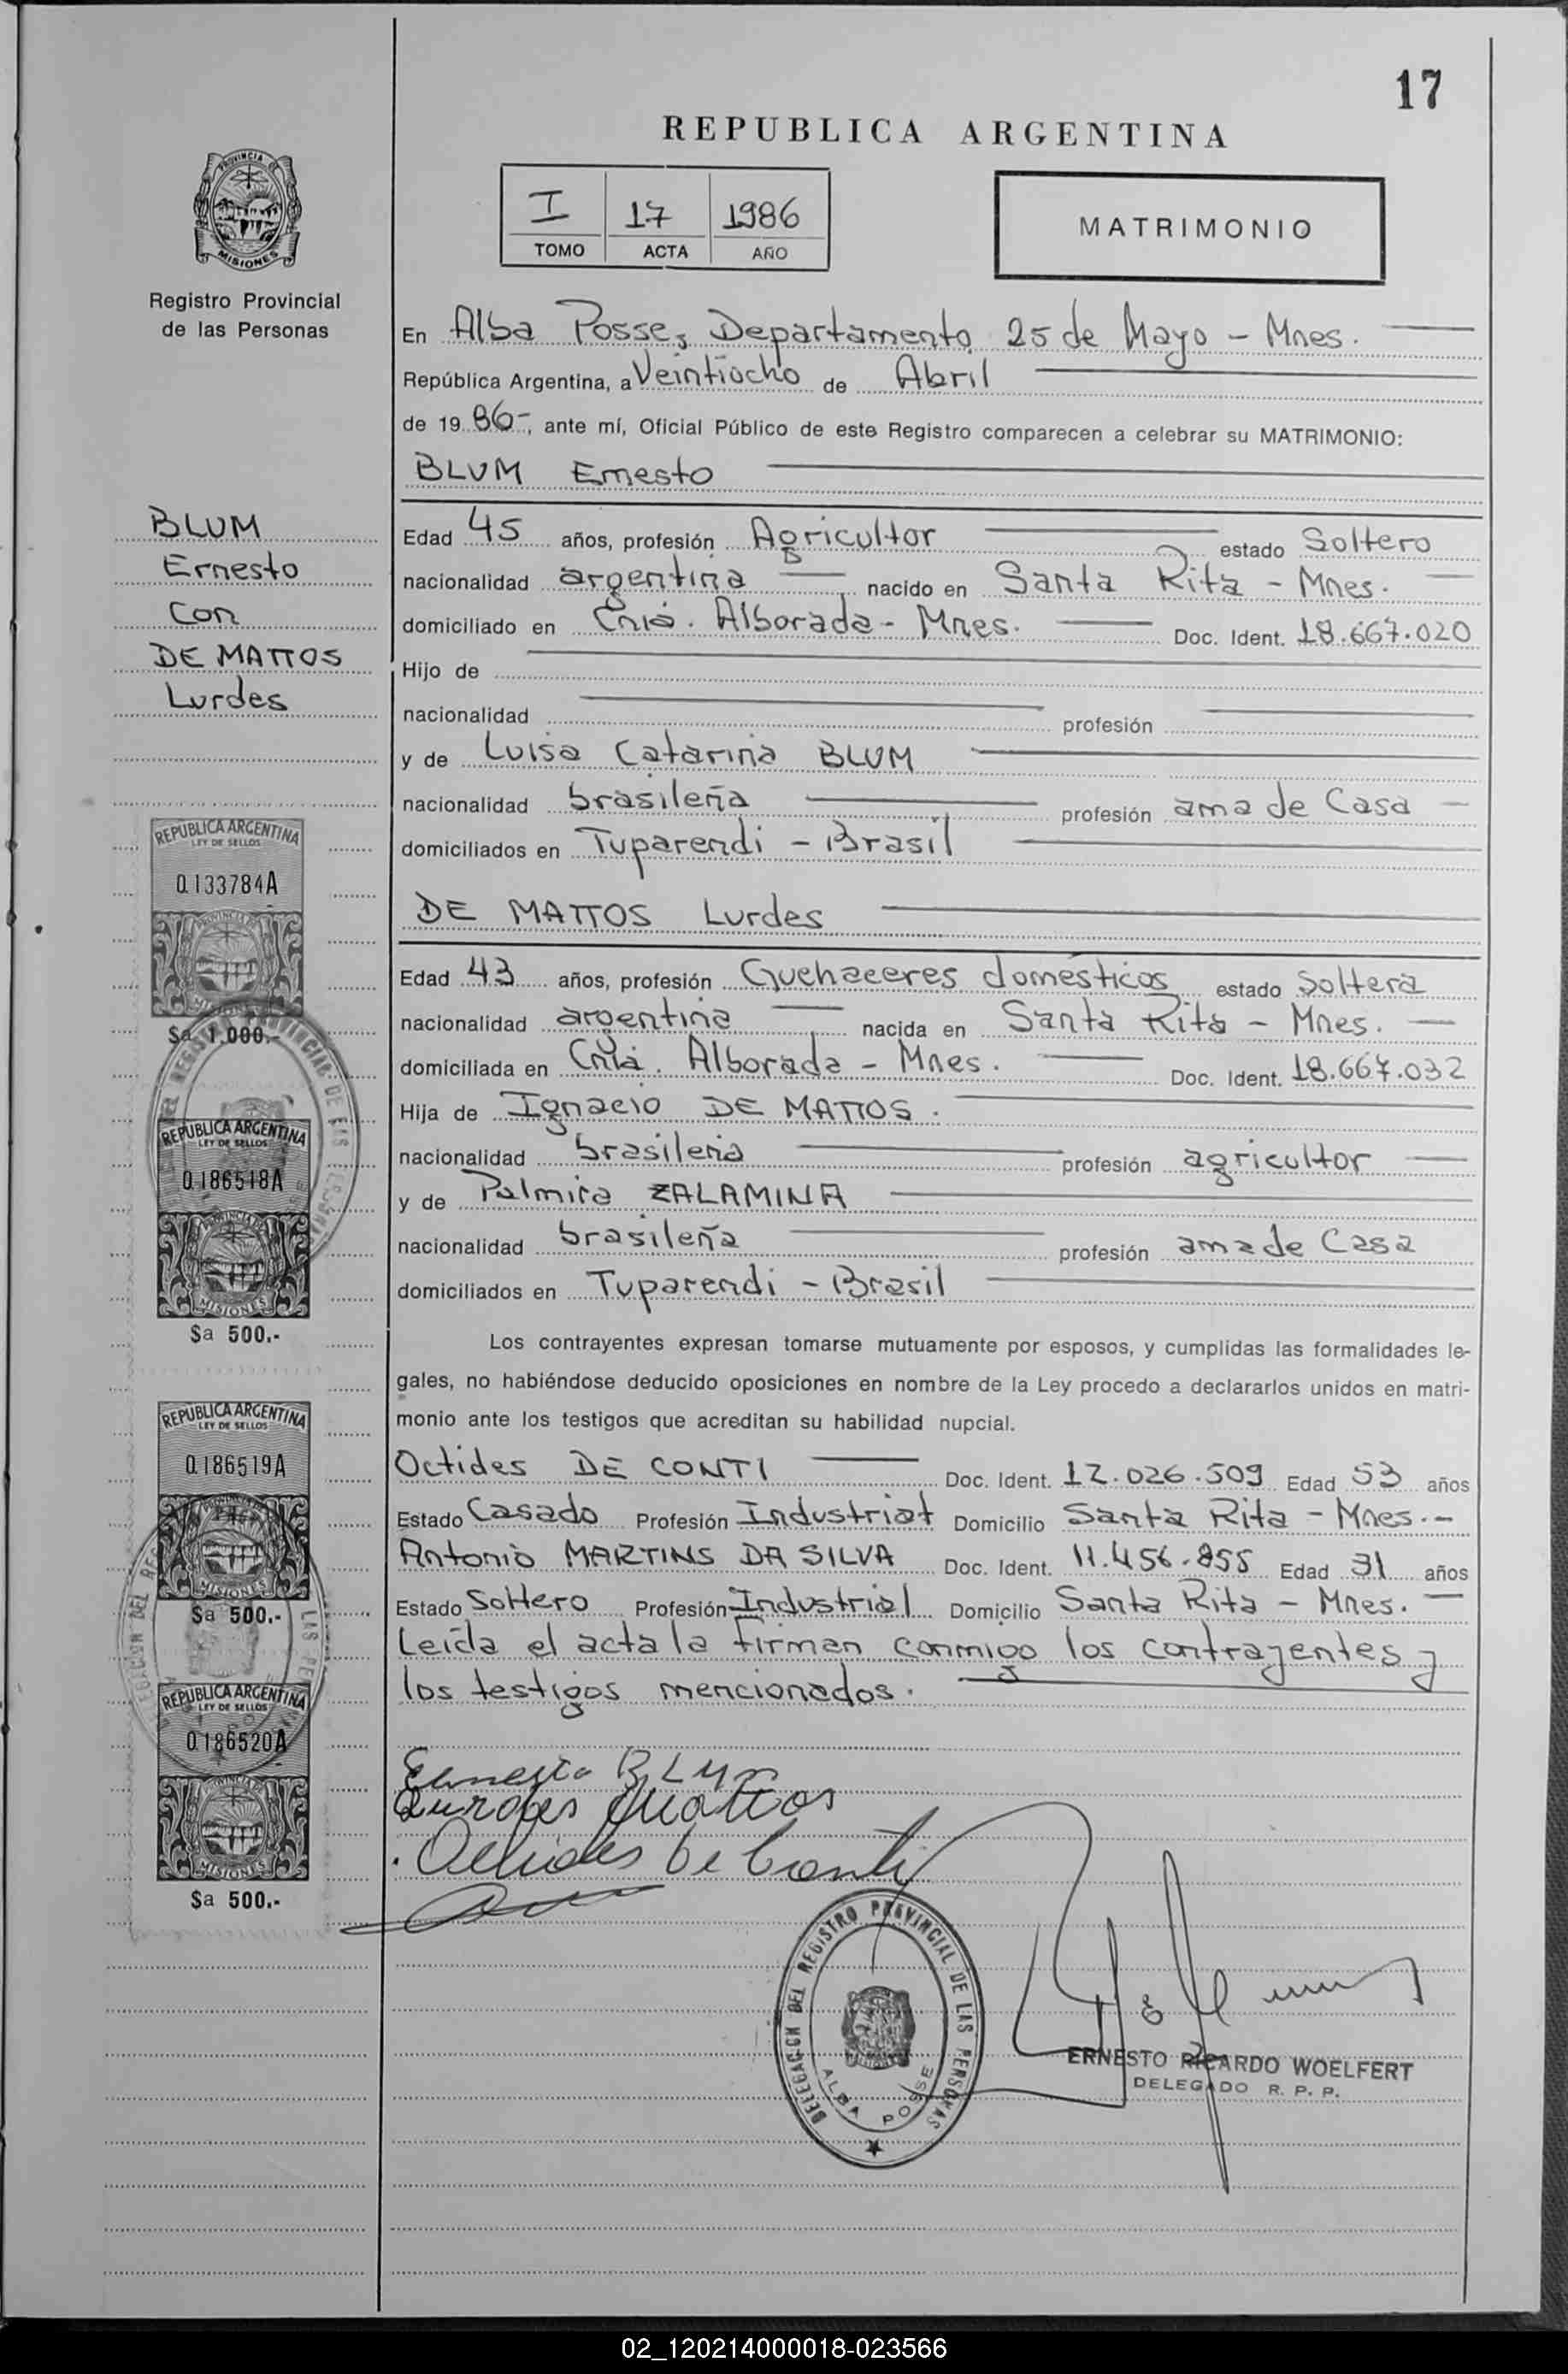 17
REPUBLICA ARGENTINA
I 17 1986
TOMO ACTA AÑO
MATRIMONIO
PROVINCIA DE
MISIONES
Registro Provincial
de las Personas
En Alba Posse, Departamento 25 de Mayo - Mnes.
República Argentina, a Veintiocho de Abril
de 19 86-, ante mí, Oficial Público de este Registro comparecen a celebrar su MATRIMONIO:
BLUM Ernesto
BLUM
Ernesto
con
DE MATTOS
Lurdes
Edad 45 años, profesión Agricultor estado Soltero
nacionalidad argentina nacido en Santa Rita - Mnes.
domiciliado en Cnia. Alborada - Mnes. Doc. Ident. 18.667.020
Hijo de
nacionalidad profesión
y de Luisa Catarina BLUM
nacionalidad brasileña profesión ama de Casa
domiciliados en Tuparendi - Brasil
DE MATTOS Lurdes
Edad 43 años, profesión Quehaceres domésticos estado Soltera
nacionalidad argentina nacida en Santa Rita - Mnes.
domiciliada en Cnia. Alborada - Mnes. Doc. Ident. 18.667.032
Hija de Ignacio DE MATTOS.
nacionalidad brasileña profesión agricultor
y de Palmira ZALAMINA
nacionalidad brasileña profesión ama de Casa
domiciliados en Tuparendi - Brasil
Los contrayentes expresan tomarse mutuamente por esposos, y cumplidas las formalidades le-
gales, no habiéndose deducido oposiciones en nombre de la Ley procedo a declararlos unidos en matri-
monio ante los testigos que acreditan su habilidad nupcial.
Octides DE CONTI Doc. Ident. 12.026.509 Edad 53 años
Estado Casado Profesión Industrial Domicilio Santa Rita - Mnes.-
Antonio MARTINS DA SILVA Doc. Ident. 11.456.855 Edad 31 años
Estado Soltero Profesión Industrial Domicilio Santa Rita - Mnes.
Leída el acta la firman conmigo los contrayentes y
los testigos mencionados.
REPUBLICA ARGENTINA
LEY DE SELLOS
0.133784A
$a 1.000.-
REPUBLICA ARGENTINA
LEY DE SELLOS
0.186518A
MISIONES
$a 500.-
REPUBLICA ARGENTINA
LEY DE SELLOS
0.186519A
MISIONES
$a 500.-
REPUBLICA ARGENTINA
LEY DE SELLOS
0.186520A
MISIONES
$a 500.-
Ernesto BLUM
Lurdes Mattos
Octides De Conti
DELEGACION DEL REGISTRO PROVINCIAL DE LAS PERSONAS
ALBA POSSE
ERNESTO RICARDO WOELFERT
DELEGADO R. P. P.
02_120214000018-023566